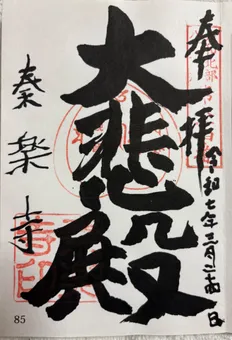 奉拝
令和七年三月 日
大悲殿
秦楽寺
85